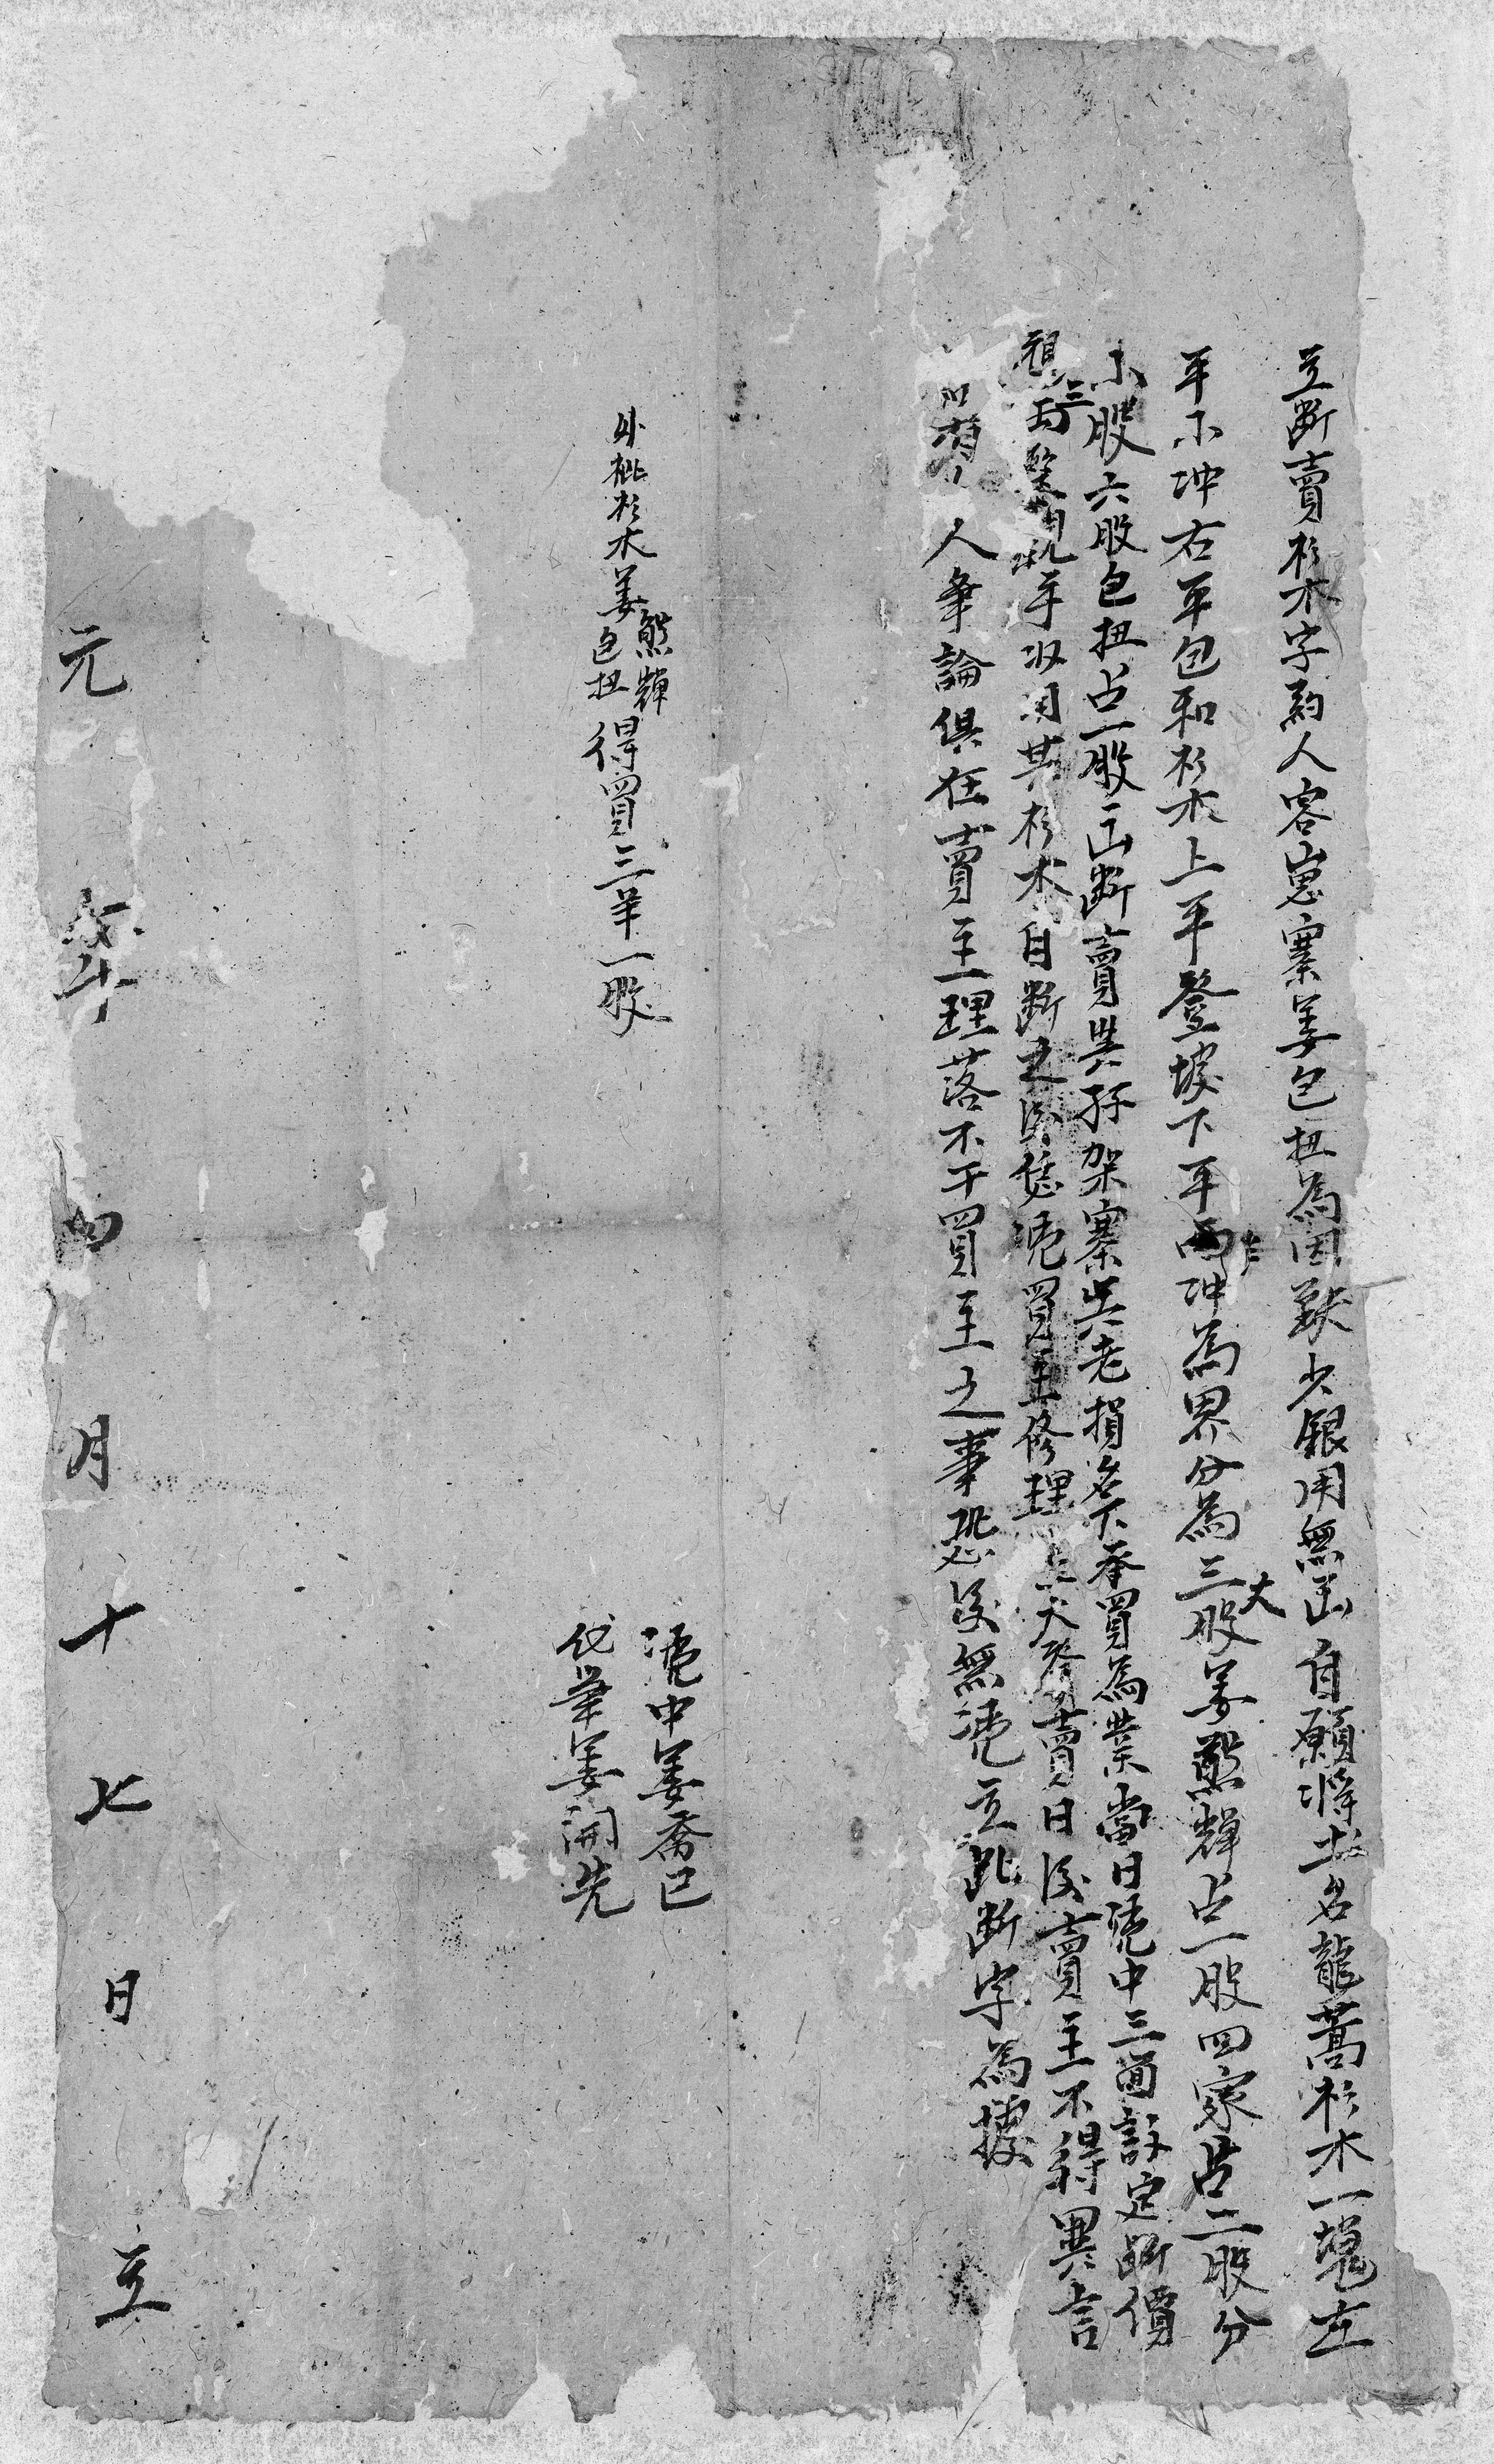 立斷賣杉木字約人容嵬寨姜包扭為因缺少銀用無出自願將土名龍蒿杉木一塊左
平小冲右平包和杉木上平登坡下平左冲為界分為三大股姜熊輝占一股四家占二股分
小股六股包扭占一股出斷賣與孖架寨吳老損名下承買為業當日憑中三面議定斷價
銀三両整親手收用其杉木自斷之後恁憑買主修理 賣日後賣主不得異言
如有 人爭論俱在賣主理落不干買主之事恐後無憑立此斷字為據
憑中姜喬包
代筆姜開先
外批杉木姜熊輝包扭得買三羊一股
元年四月十七日立